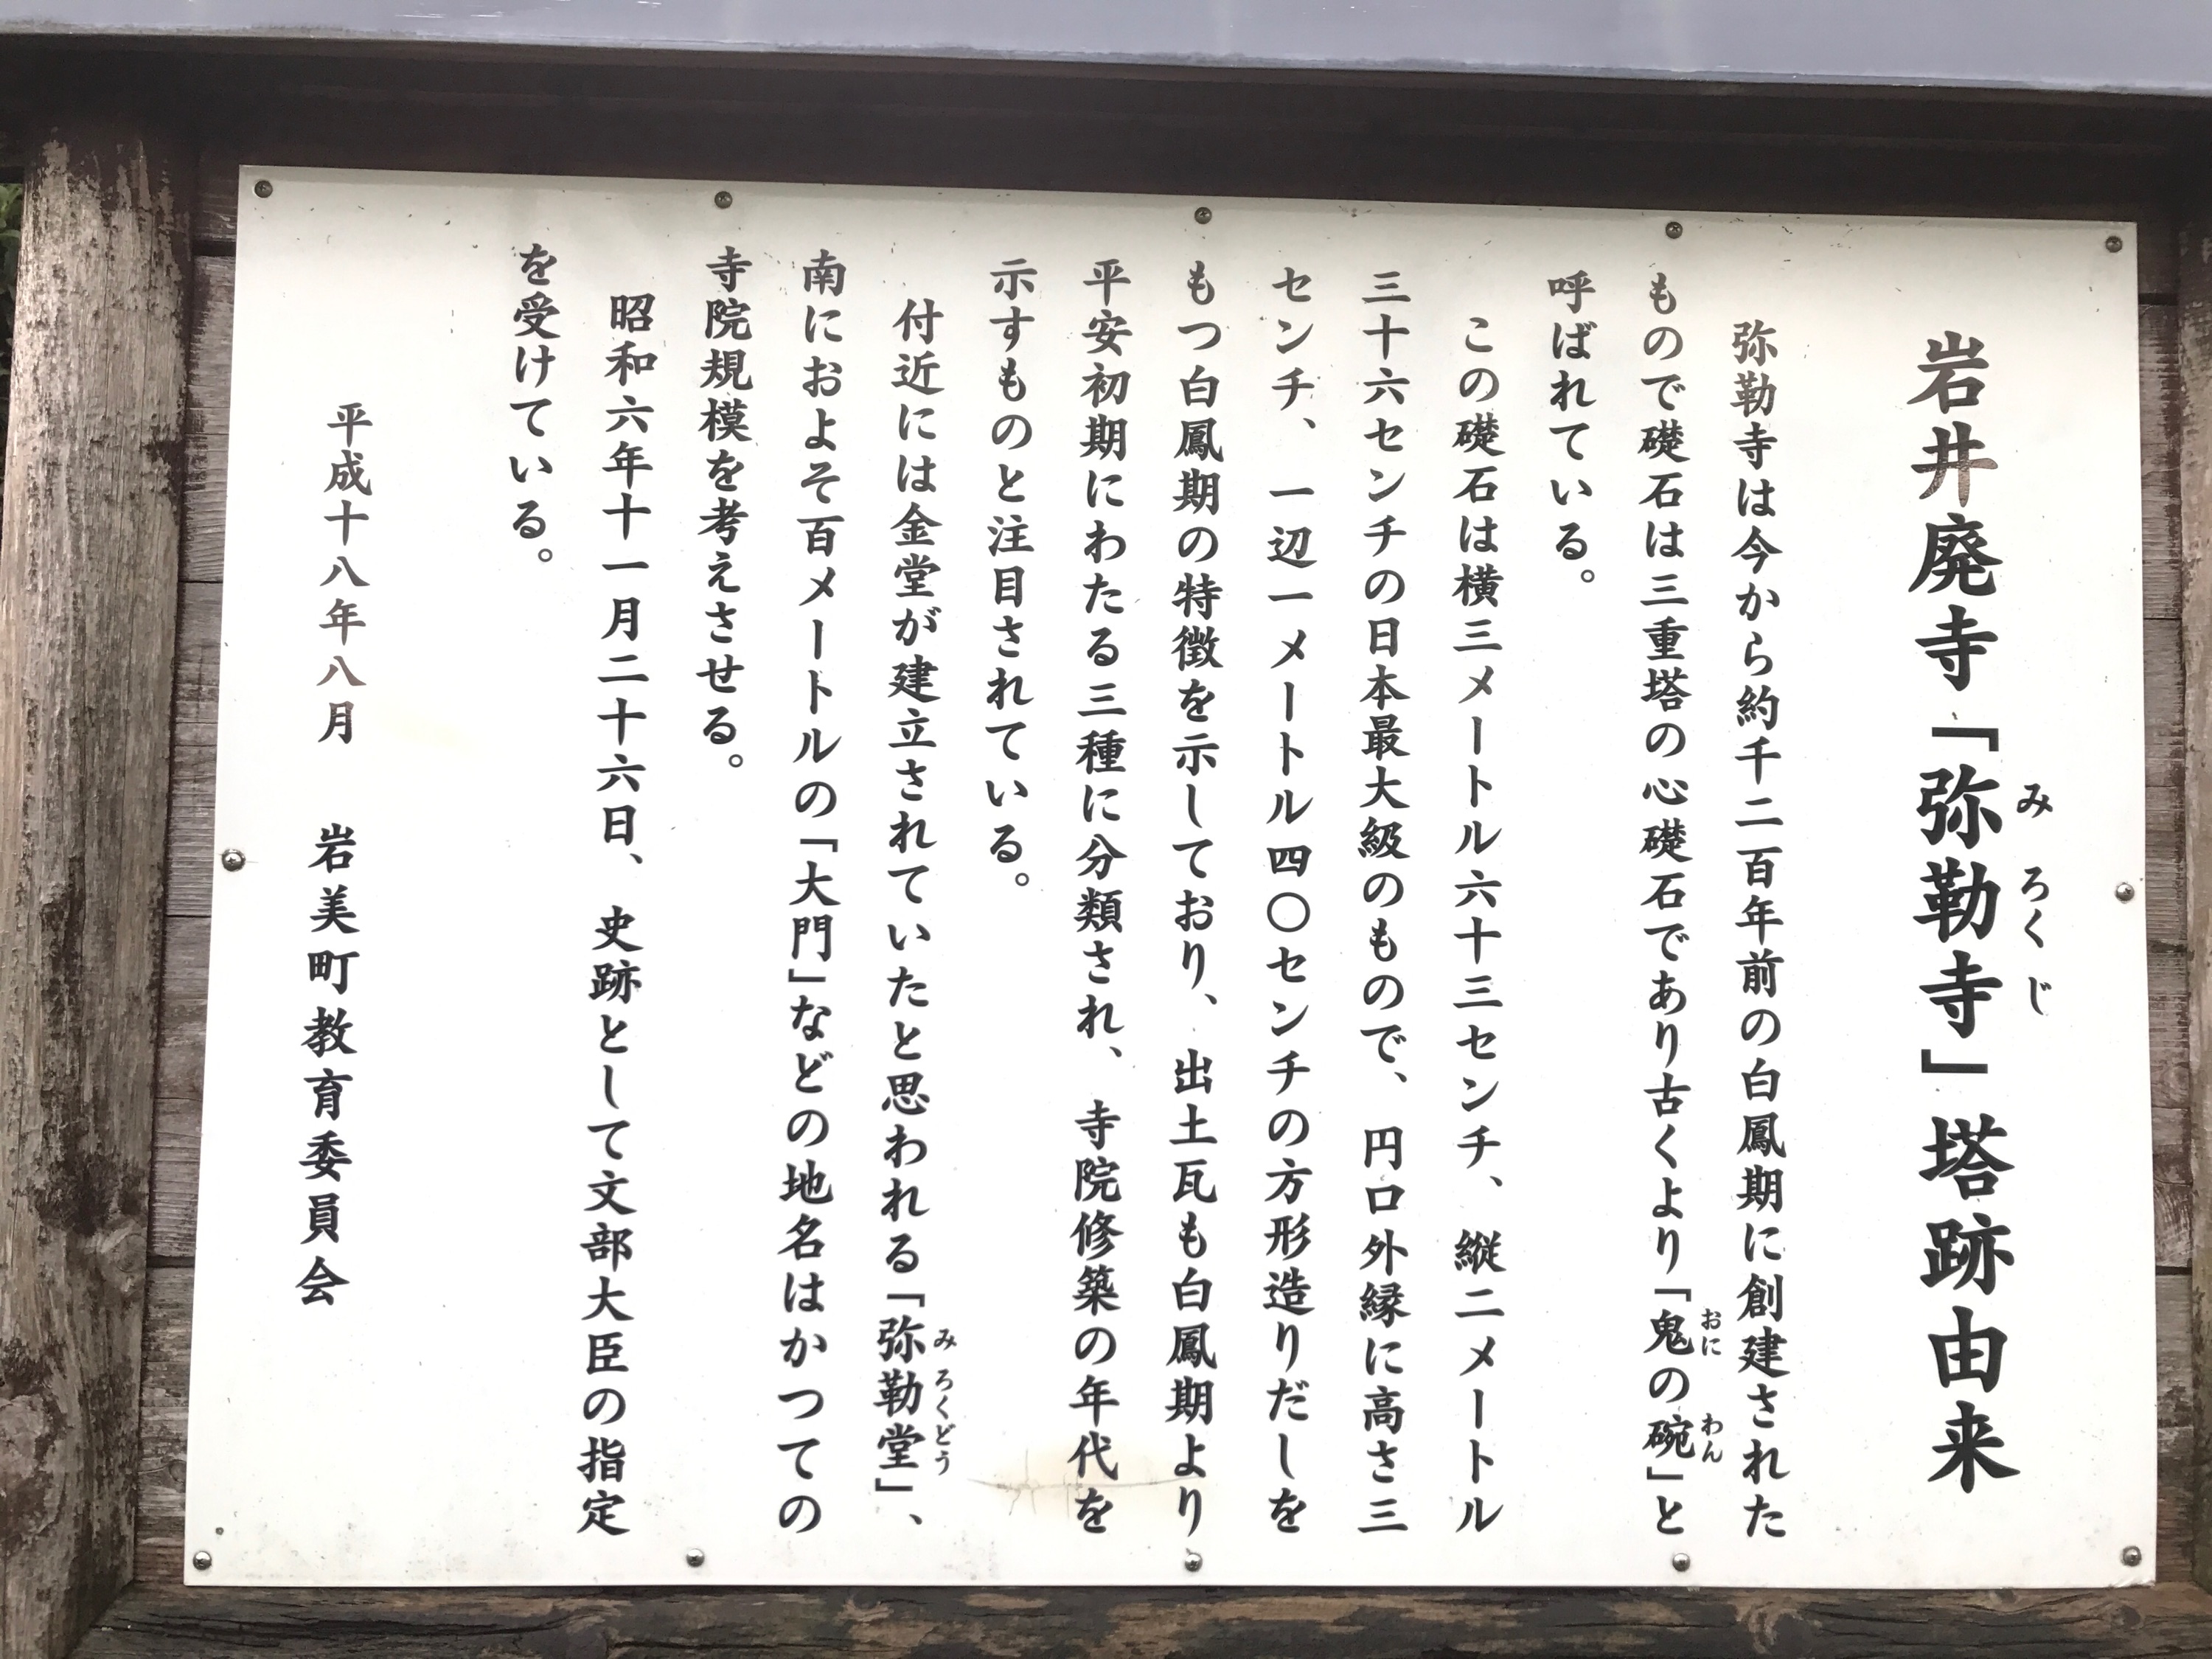 岩井廃寺「弥勒寺」塔跡由来
みろくじ
弥勒寺は今から約千二百年前の白鳳期に創建された
もので礎石は三重塔の心礎石であり古くより「鬼の碗」と
おに わん
呼ばれている。
この礎石は横三メートル六十三センチ、縦二メートル
三十六センチの日本最大級のもので、円口外縁に高さ三
センチ、一辺一メートル四〇センチの方形造りだしを
もつ白鳳期の特徴を示しており、出土瓦も白鳳期より
平安初期にわたる三種に分類され、寺院修築の年代を
示すものと注目されている。
付近には金堂が建立されていたと思われる「弥勒堂」、
みろくどう
南におよそ百メートルの「大門」などの地名はかつての
寺院規模を考えさせる。
昭和六年十一月二十六日、史跡として文部大臣の指定
を受けている。
平成十八年八月 岩美町教育委員会